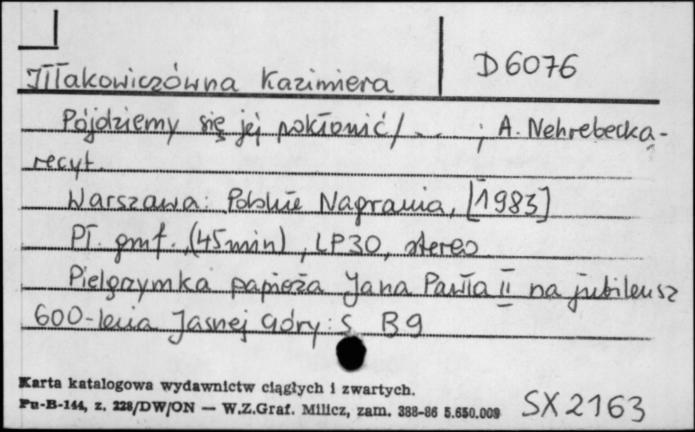 D 6076
Iłłakowiczówna Kazimiera
Pójdziemy się jej pokłonić / . . . ; A. Nehrebecka-
recyt.
Warszawa : Polskie Nagrania, [1983]
Pł. gmf. (45 min), LP30, stereo
Pielgrzymka papieża Jana Pawła II na jubileusz
600-lecia Jasnej Góry : S. B 9
Karta katalogowa wydawnictw ciągłych i zwartych.
Pu-B-144, z. 228/DW/ON — W.Z.Graf. Milicz, zam. 388-86 5.650.000
SX 2163